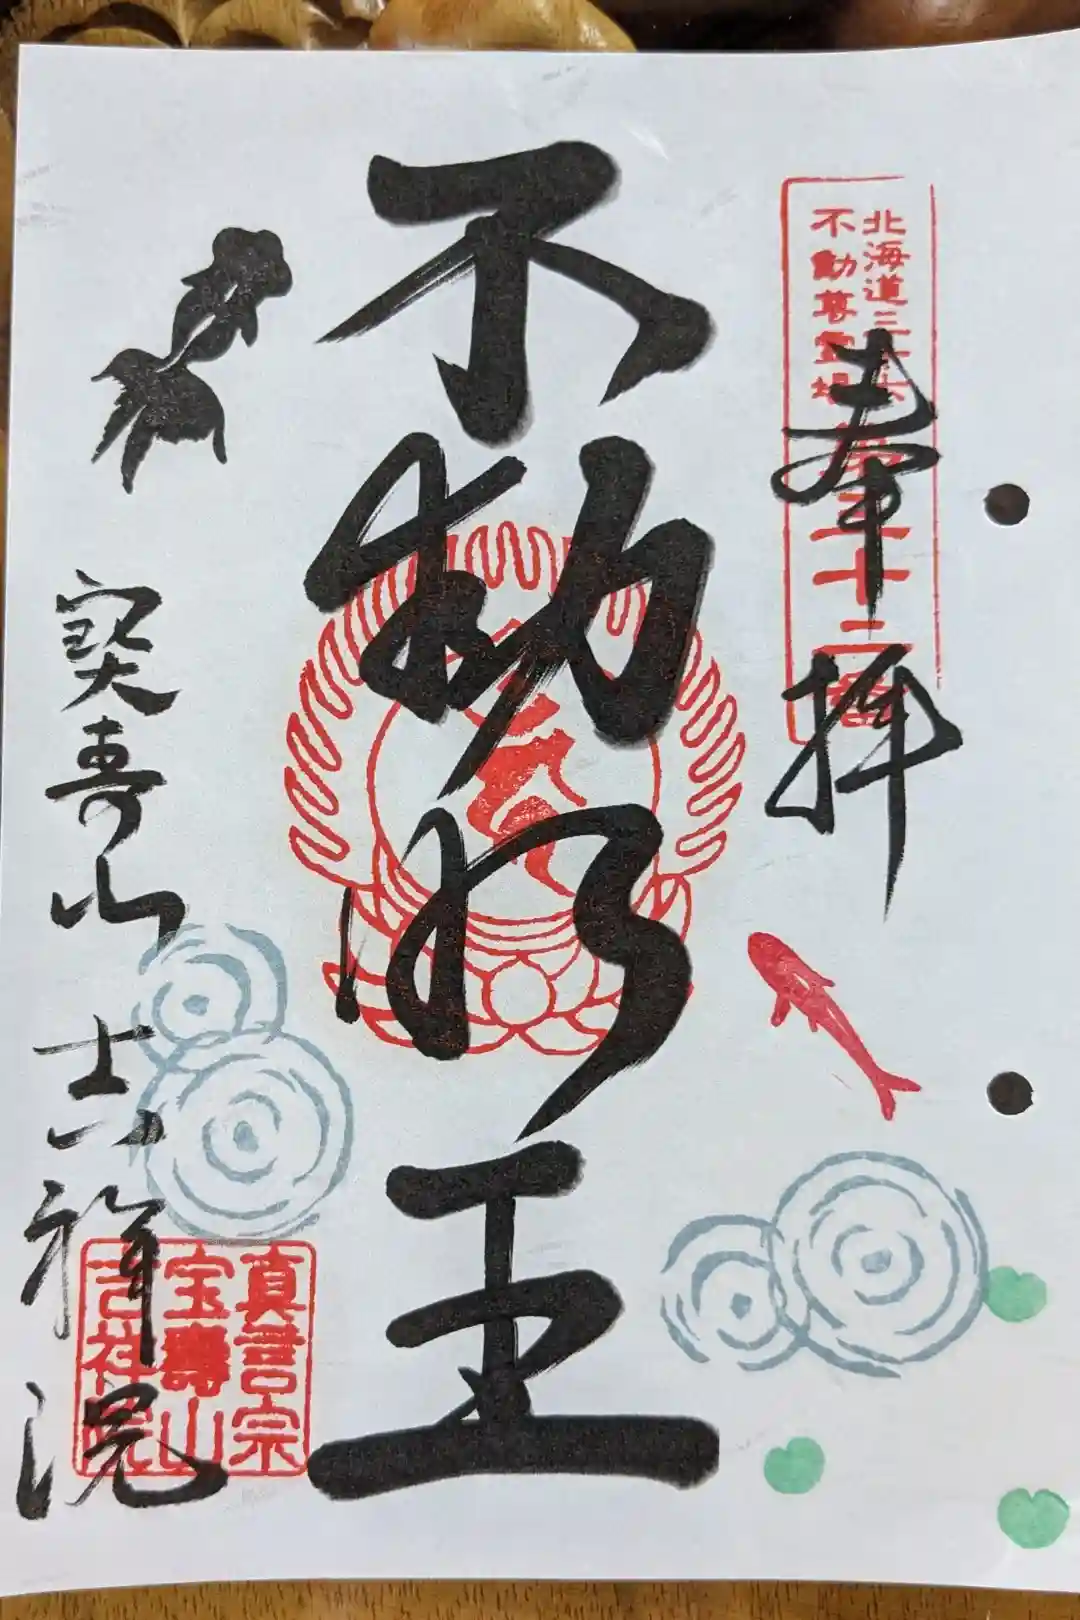 北海道三十六
不動尊霊場
第三十二番
奉拝
不動明王
寳壽山
吉祥院
真言宗
宝壽山
吉祥院